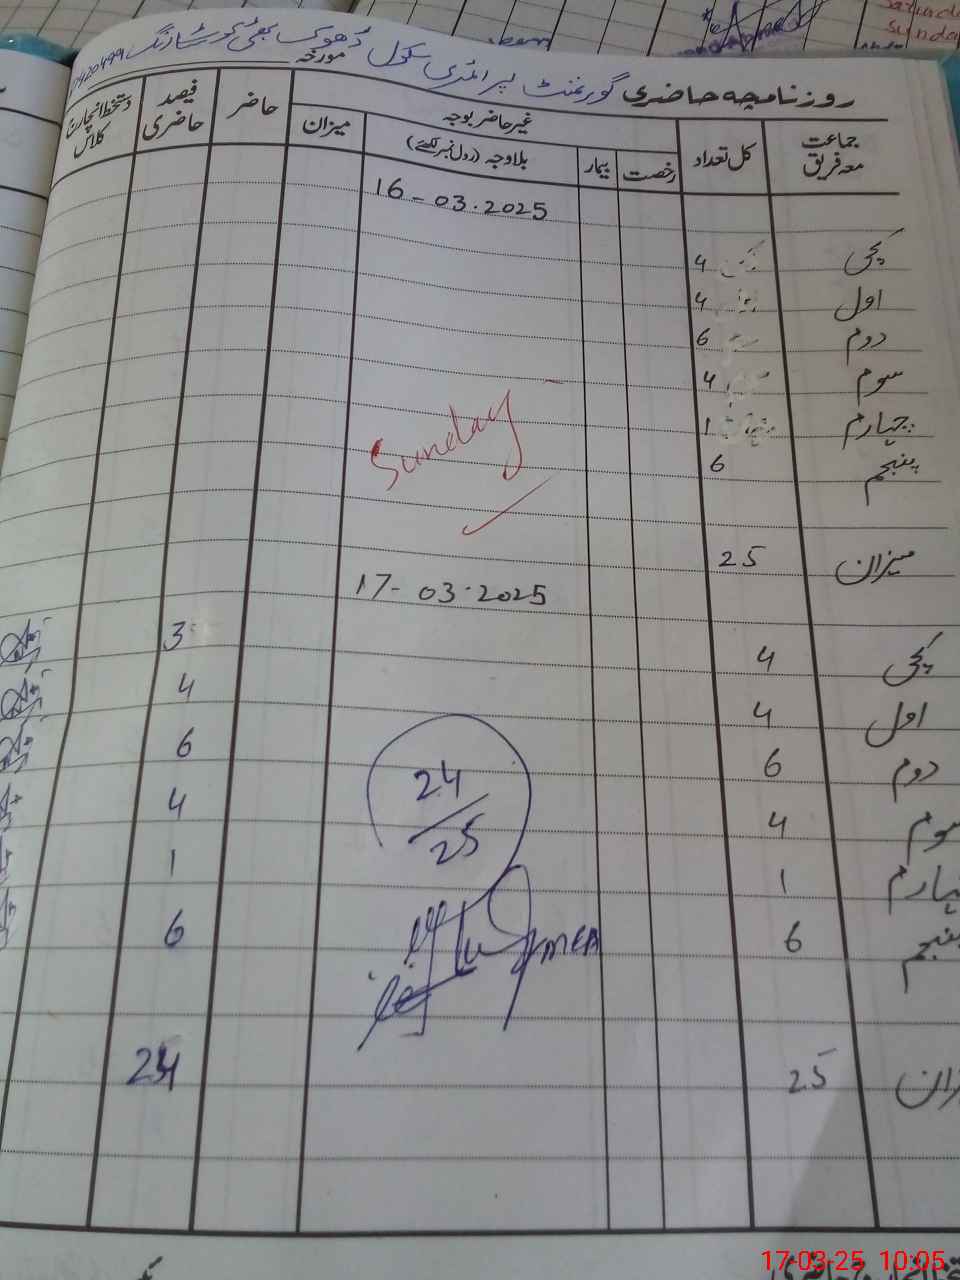 Saturda
Sunda
گورنمنٹ پرائمری سکول ڈھوک
روزنامچہ حاضری مورخہ
جماعت معہ فریق کل تعداد غیر حاضر بوجہ میزان حاضر فیصد حاضری دستخط انچارج کلاس
رخصت بیمار بلاوجہ (رول نمبر لکھئے)
16-03-2025
کچی 4
اول 4
دوم 6
سوم 4
چہارم 1
پنجم 6
Sunday
میزان 25
17-03-2025
کچی 4 3
اول 4 4
دوم 6 6
سوم 4 4
چہارم 1 1
پنجم 6 6
24
25
MEA
میزان 25 24
17-03-25 10:05